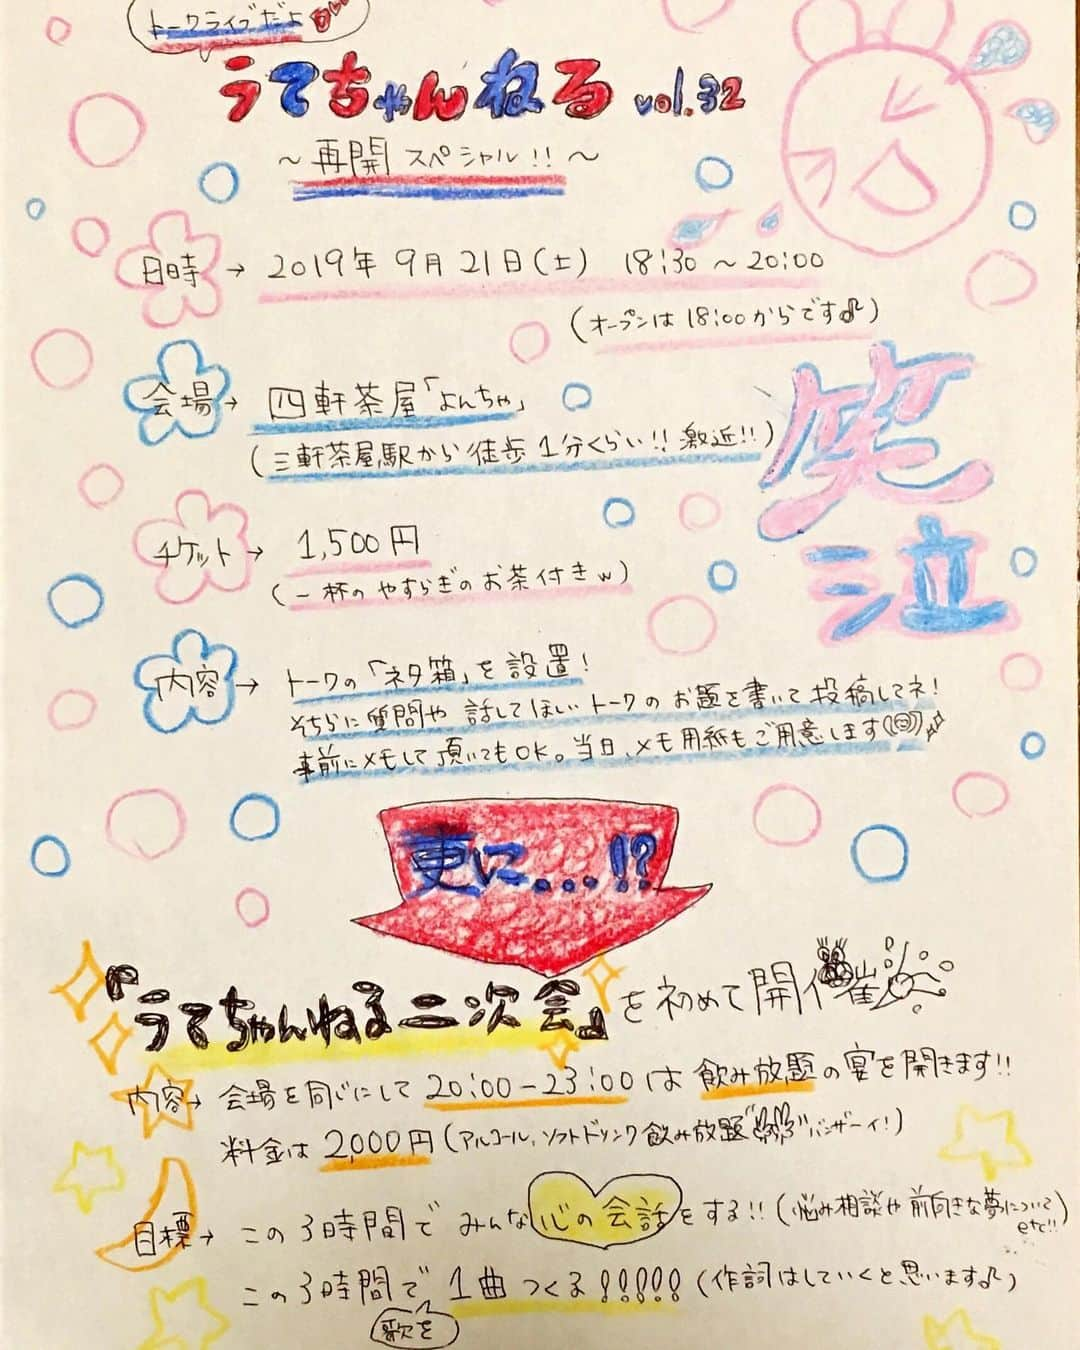 トークライブだよ
うてちゃんねる vol.32
～再開スペシャル!!～
日時→ 2019年9月21日(土) 18:30～20:00
(オープンは18:00からです♪)
会場→ 四軒茶屋「よんちゃ」
(三軒茶屋駅から徒歩1分くらい!!激近!!)
笑
泣
チケット→ 1,500円
(一杯のやすらぎのお茶付きw)
内容→ トークの「ネタ箱」を設置!
そちらに質問や話してほしいトークのお題を書いて投稿してネ!
事前にメモして頂いてもOK。当日、メモ用紙もご用意します
更に...!?
『うてちゃんねる二次会』を初めて開催
内容→ 会場を同じにして20:00-23:00は飲み放題の宴を開きます!!
料金は2,000円(アルコール、ソフトドリンク飲み放題バンザーイ!)
目標→ この3時間でみんな心の会話をする!!(悩み相談や前向きな夢について
etc!!)
この3時間で1曲つくる!!!!!(作詞はしていくと思います♪)
歌を